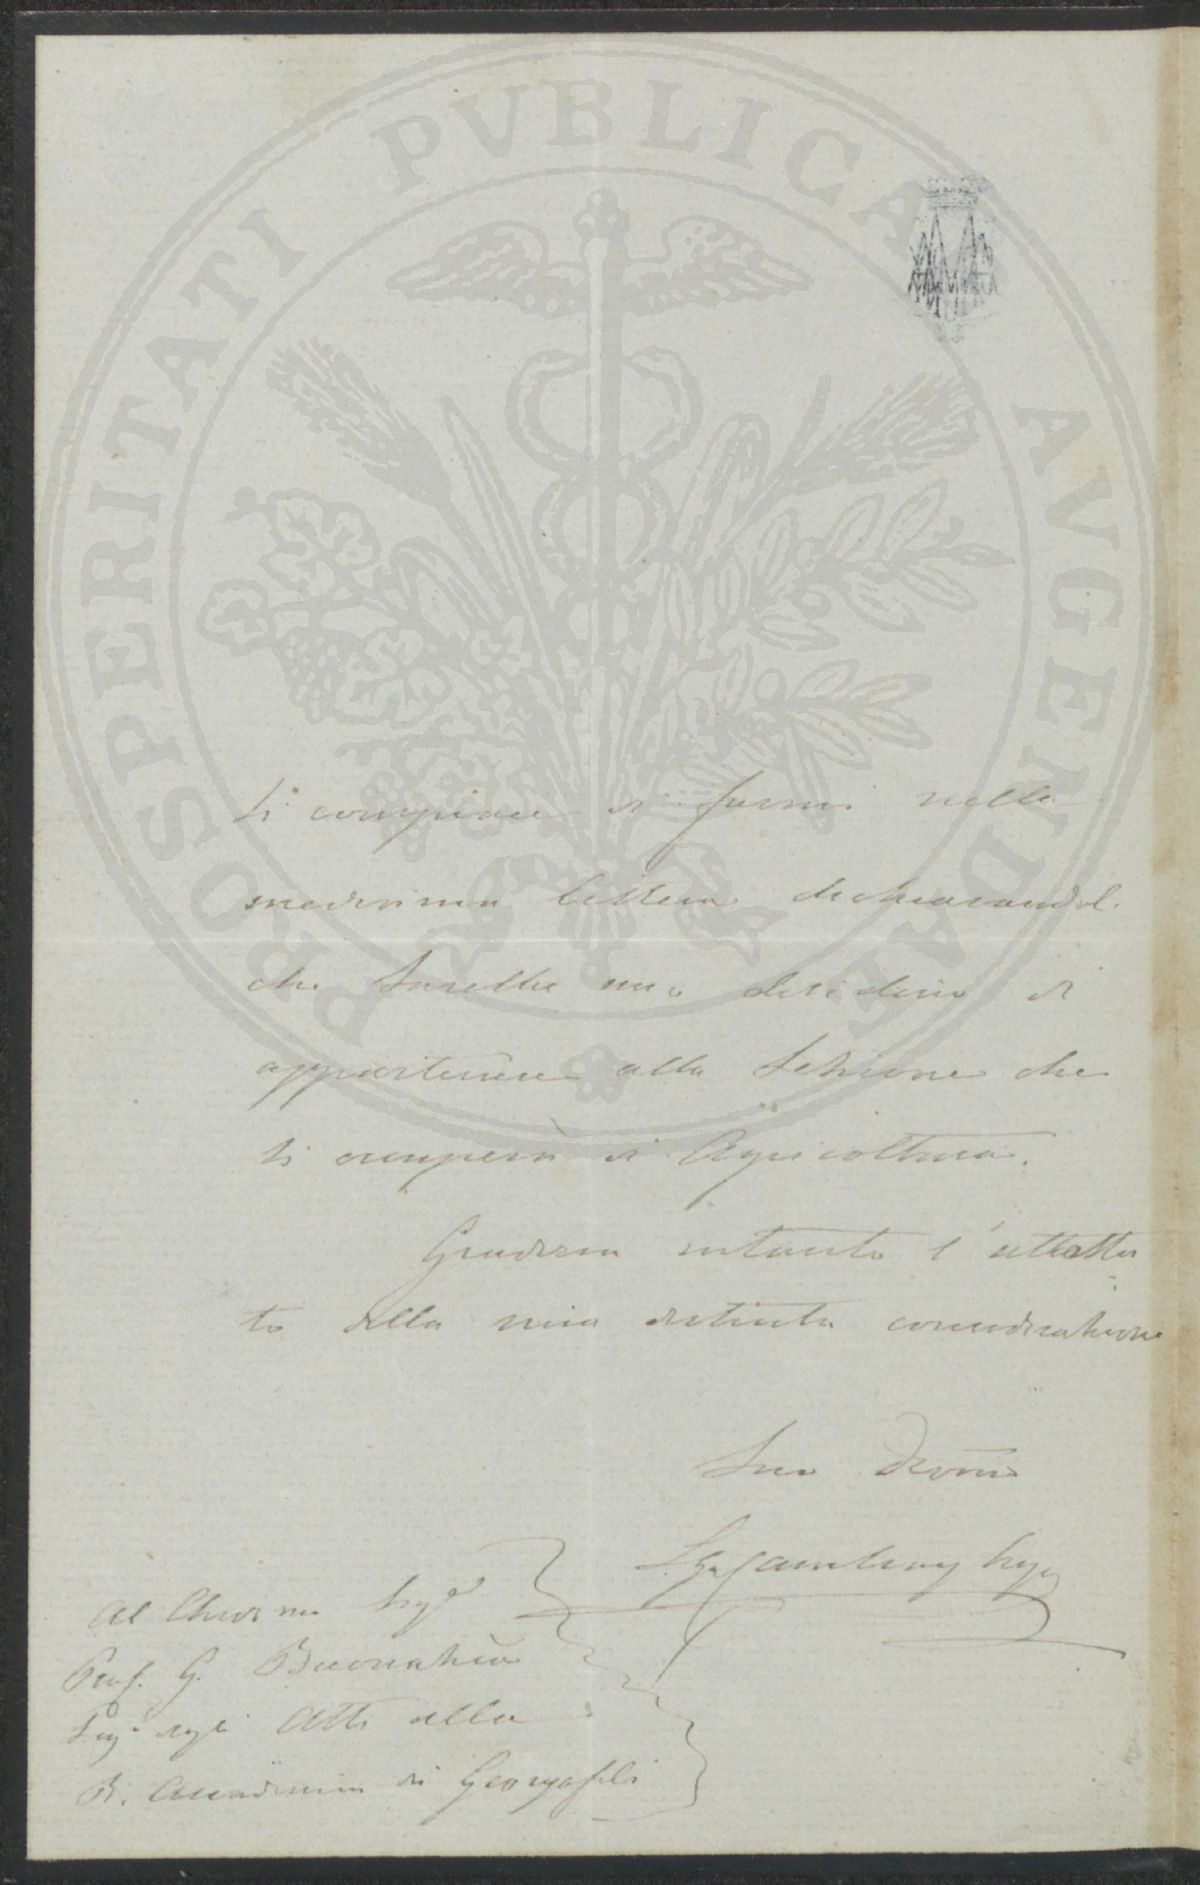 PROSPERITATI PVBLICAE AVGENDAE
si compiace di farmi nella
medesima lettera dichiarandole
che sarebbe mio desiderio di
appartenere alla Sezione che
si occuperà di Agricoltura.
Gradisca intanto l'attesta
to della mia distinta considerazione
Suo Devmo
Al Chiarmo Sigr
Prof. G. Buonahia
Seg. degli Atti della
R. Accademia dei Georgofili